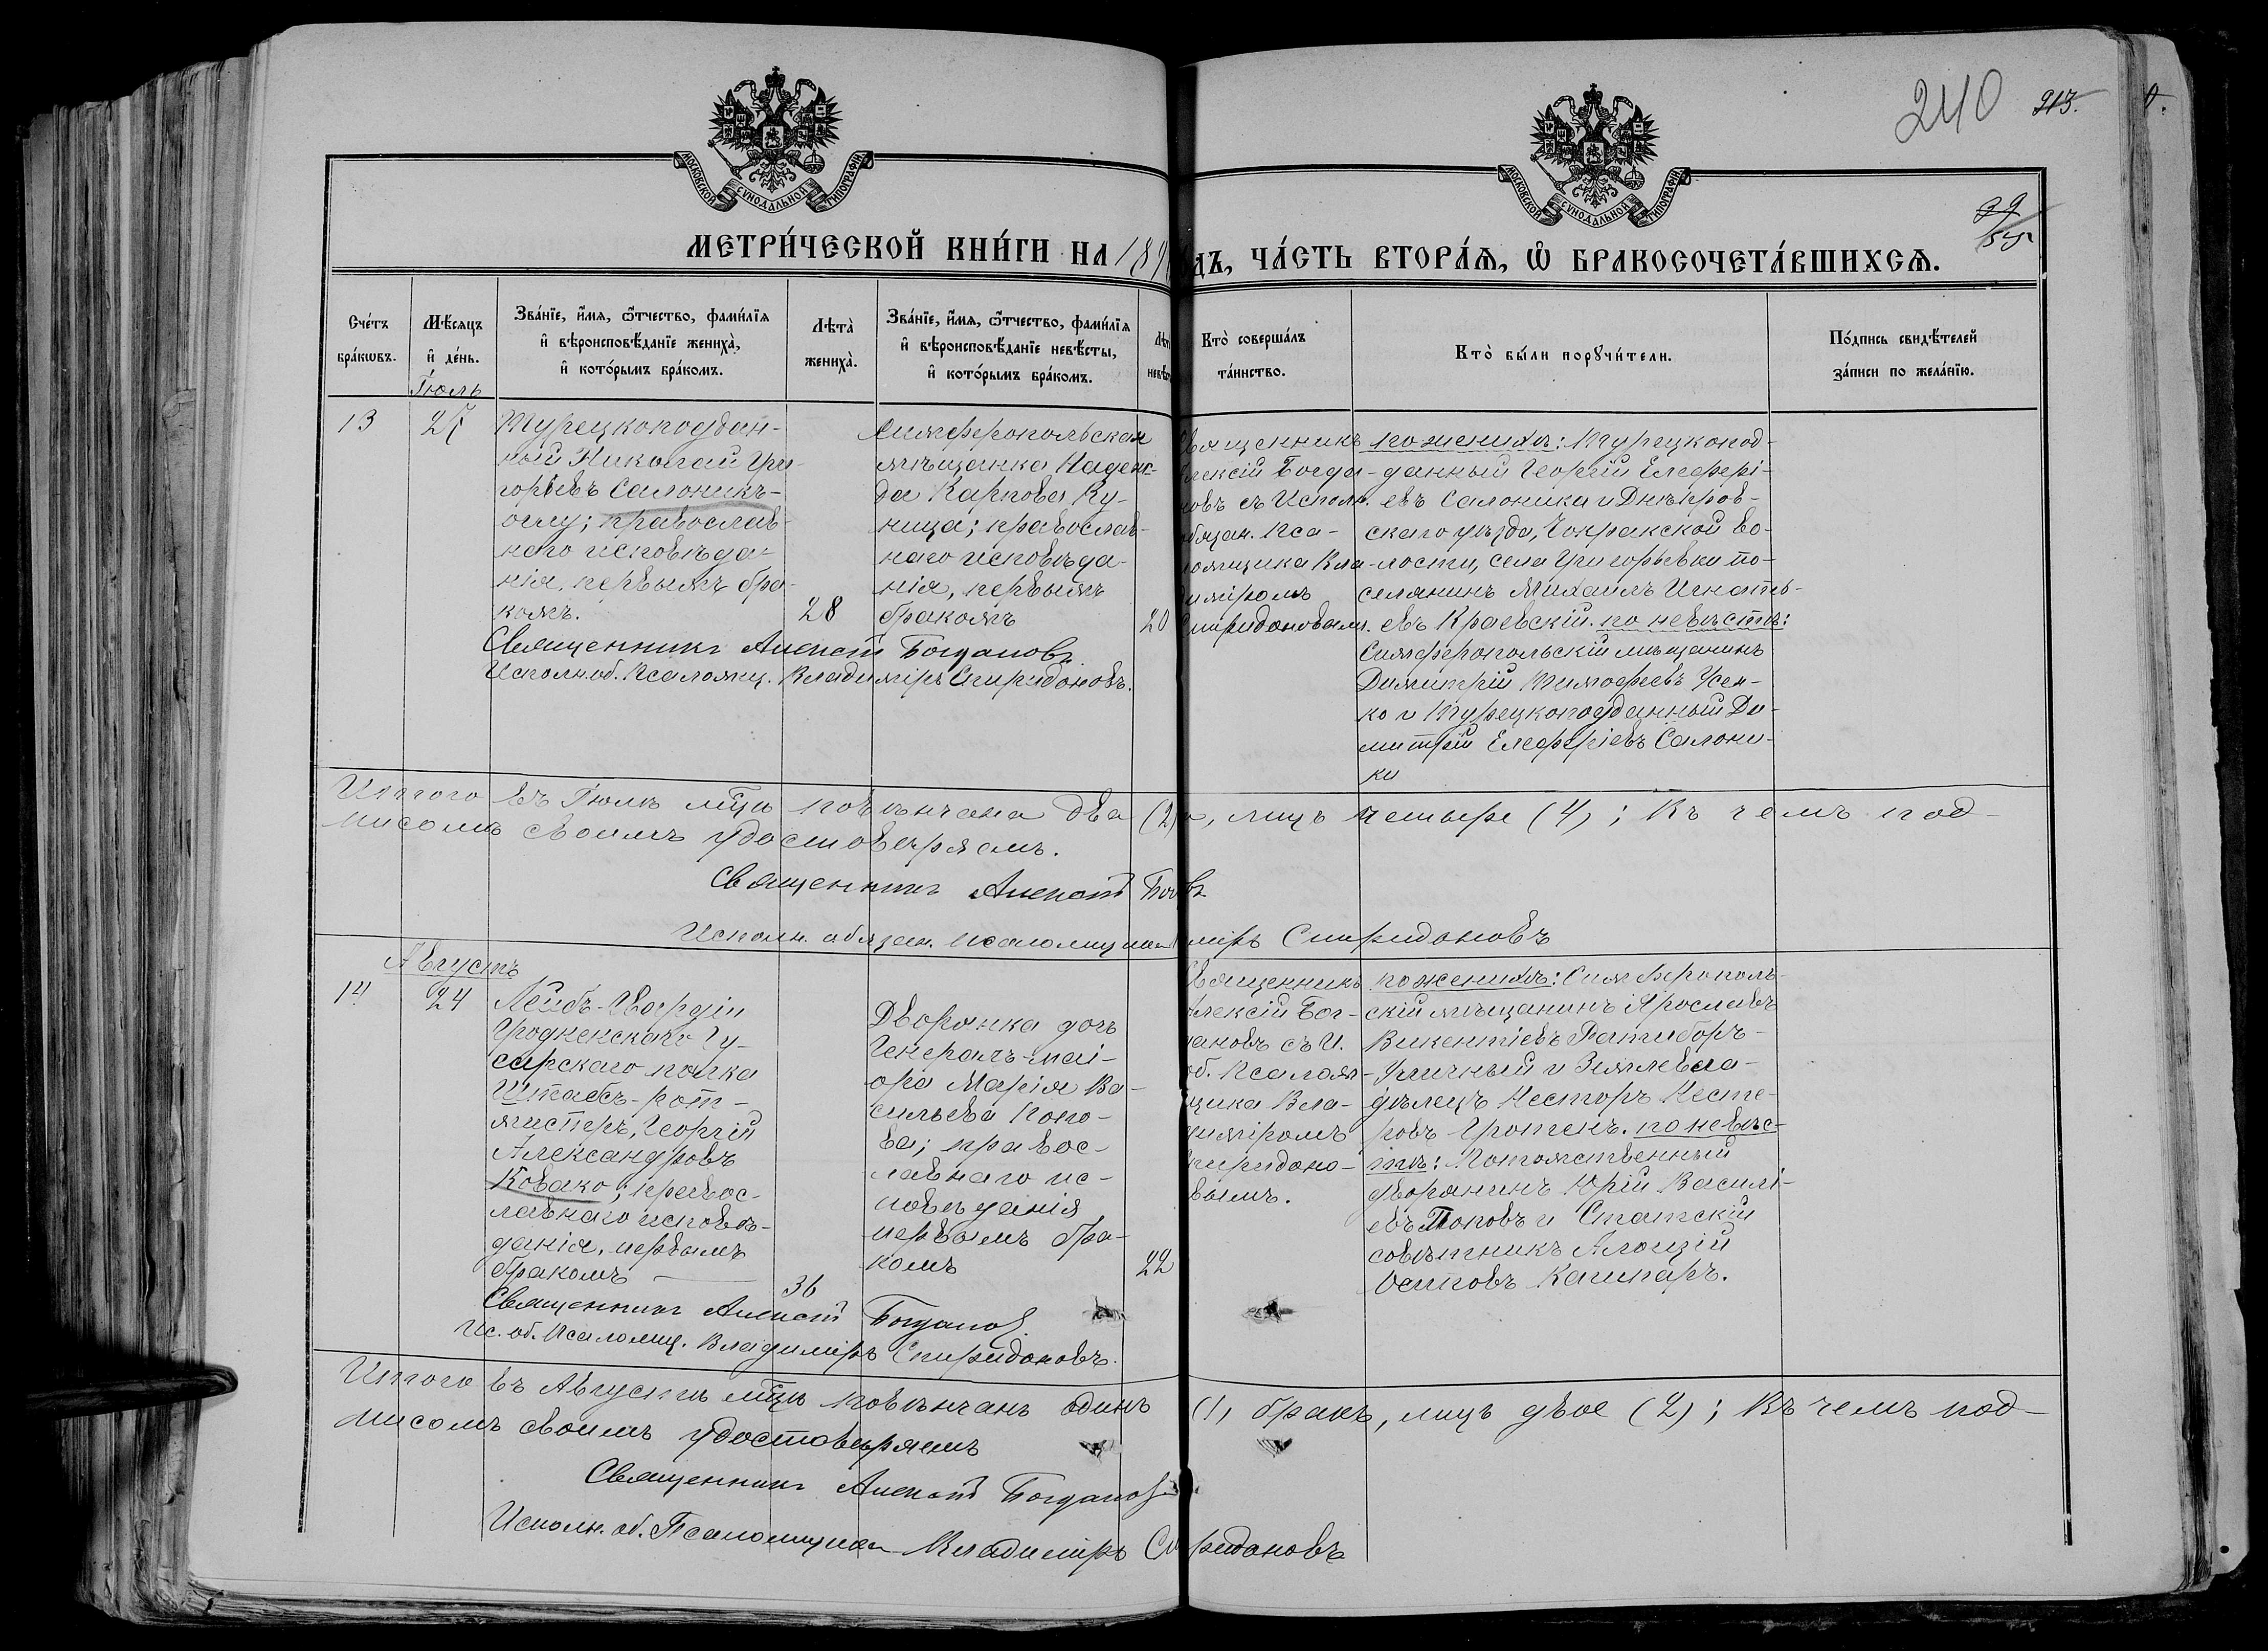 240 213.
МОСКОВСКОЙ СУНОДАЛЬНОЙ ТИПОГРАФІИ
МОСКОВСКОЙ СУНОДАЛЬНОЙ ТИПОГРАФІИ
МЕТРИ́ЧЕСКОЙ КНИ́ГИ НА 189
ДЪ, ЧА́СТЬ ВТОРА́Ѧ, Ѽ БРАКОСОЧЕТА́ВШИХСѦ.
Сче́тъ бра́кѡвъ.
Мѣ́сяцъ и҆ де́нь.
Зва́нїе, и҆́мя, ѻ҆́тчество, фами́лїя
и҆ вѣроисповѣ́данїе жениха̀,
и҆ кото́рымъ бра́комъ.
Лѣта̀ жениха̀.
Зва́нїе, и҆́мя, ѻ҆́тчество, фами́лїя
и҆ вѣроисповѣ́данїе невѣ́сты,
и҆ кото́рымъ бра́комъ.
Кто̀ соверша́лъ та́инство.
Кто̀ бы́ли порꙋчи́тели.
По́дпись свидѣ́телей
за́писи по жела́нїю.
Іюль
13 27
Турецкоподдан-
ный Николай Гри-
горьевъ Салоникъ-
оглу; православ-
наго исповѣда-
нія, первымъ бра-
комъ.
28
Симферопольская
мѣщанка Надеж-
да Карпова Ку-
ница; православ-
наго исповѣда-
нія, первымъ
бракомъ
20
Священникъ
Алексій Богда-
новъ съ Исполн.
обязан. Пса-
ломщика Вла-
диміромъ
Спиридоновымъ.
по женихѣ: Турецкопод-
данный Георгій Елефері-
евъ Салоника и Днѣпров-
скаго уѣзда, Чокракской во-
лости, села Григорьевки по-
селянинъ Михаилъ Игнать-
евъ Краевскій. по невѣстѣ:
Симферопольскій мѣщанинъ
Димитрій Тимофеевъ Усен-
ко и Турецкоподданный Ди-
митрій Елеферіевъ Салони-
ки
Священникъ Алексій Богдановъ.
Исполн. об. Псаломщ. Владиміръ Спиридоновъ.
Итого въ Іюлѣ мцѣ повѣнчана два (2) , лицъ четыре (4); Въ чемъ под-
писомъ своимъ удостовѣряемъ.
Священникъ Алексій
Исполн. обязан. Псаломщика міръ Спиридоновъ
Августъ
14 24
Лейбъ-Гвардіи
Гродненскаго Гу-
сарскаго полка
Штабсъ-рот-
мистеръ, Георгій
Александровъ
Ковако; правос-
лавнаго исповѣ-
данія, первымъ
бракомъ
36
Дворянка дочь
Генералъ-маі-
ора Марія Ва-
сильева Попо-
ва; правос-
лавнаго ис-
повѣданія
первымъ бра-
комъ
22
Священникъ
Алексій Бог-
дановъ съ И.
об. Псалом-
щика Вла-
диміромъ
Спиридоно-
вымъ.
по женихѣ: Симферополь-
скій мѣщанинъ Ярославъ
Викентіевъ Ратиборъ-
Уличный и Землевла-
дѣлецъ Несторъ Несте-
ровъ Гротенъ. по невѣс-
тѣ: Потомственный
дворянинъ Юрій Василі-
евъ Поповъ и Статскій
совѣтникъ Алоизій
Осиповъ Кашпаръ.
Священникъ Алексій Богдановъ.
Ис. об. Псаломщ. Владиміръ Спиридоновъ.
Итого въ Августѣ мцѣ повѣнчанъ одинъ (1) бракъ, лицъ двое (2); Въ чемъ под-
писомъ своимъ удостовѣряемъ
Священникъ Алексій Богдановъ.
Исполн. об. Псаломщика Владиміръ Спиридоновъ